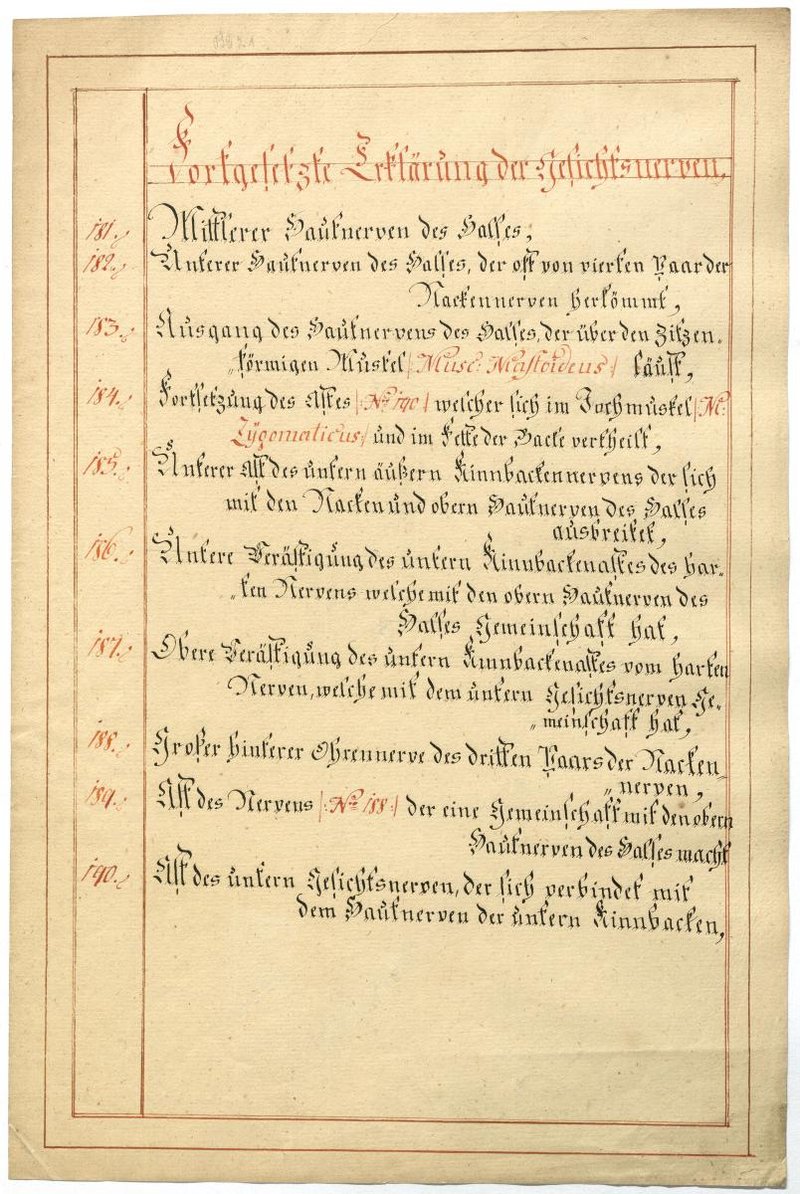 Fortgesetzte Erklärung der Gesichtsnerven,
181. Mittlerer Hautnerven des Halses,
182. Unterer Hautnerven des Halses, der oft von vierten Paar der
Nackennerven herkömmt,
183. Ausgang des Hautnervens des Halses, der über den Zitzen-
„förmigen Muskel /:Musc: Mastoideus:/ läuft,
184. Fortsetzung des Astes /:No 190:/ welcher sich im Jochmuskel /:M:
Zÿgomaticus:/ und im Fette der Backe vertheilt,
185. Unterer Ast des untern äußern Kinnbackennervens der sich
mit den Nacken und obern Hautnerven des Halses
ausbreitet,
186. Untere Verästigung des untern Kinnbackenastes des har-
„ten Nervens welche mit den obern Hautnerven des
Halses Gemeinschaft hat,
187. Obere Verästigung des untern Kinnbackenastes vom harten
Nerven, welche mit dem untern Gesichtsnerven Ge-
„meinschaft hat,
188. Großer hinterer Ohrennerve des dritten Paars der Nacken-
„nerven,
189. Ast des Nervens /:No 188:/ der eine Gemeinschaft mit den obern
Hautnerven des Halses macht
190. Ast des untern Gesichtsnerven, der sich verbindet mit
dem Hautnerven der untern Kinnbacken,